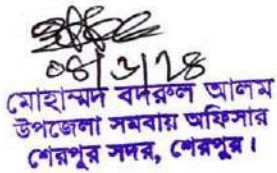 ০৪/3/28
মোহাম্মদ বদরুল আলম
উপজেলা সমবায় অফিসার
শেরপুর সদর, শেরপুর।